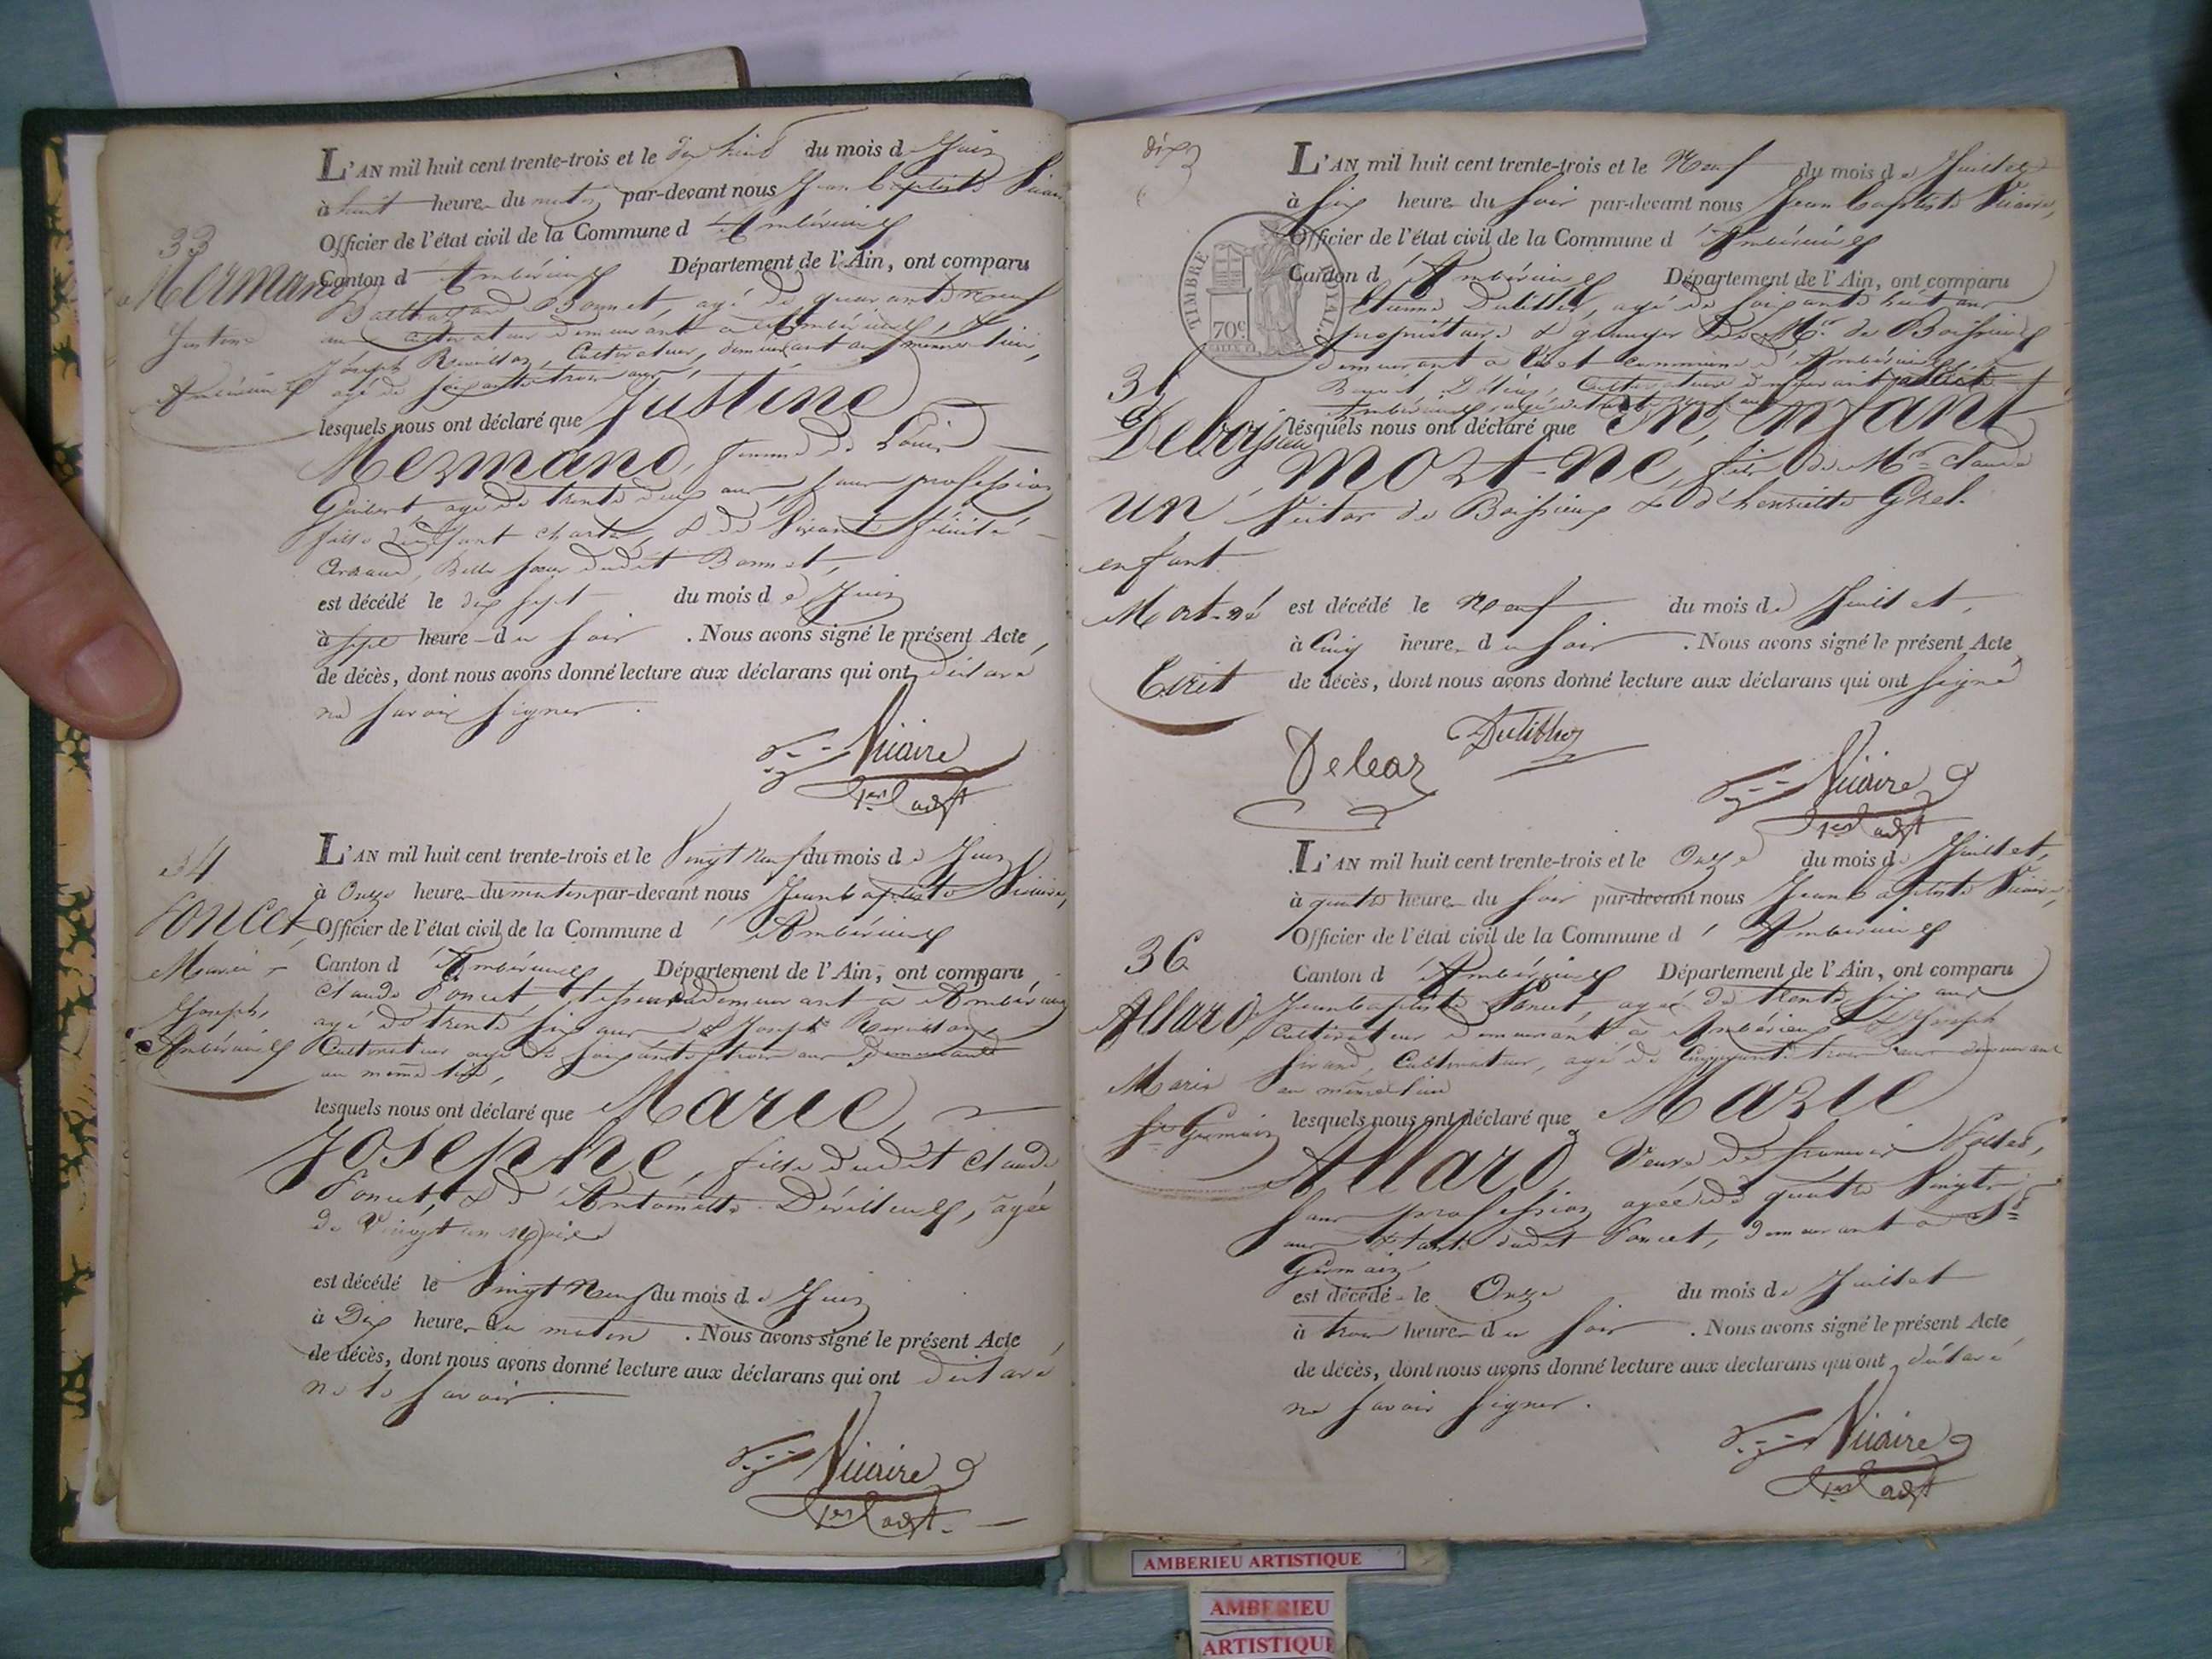 L'AN mil huit cent trente-trois et le dix huit du mois de Juin
à huit heure du matin par-devant nous Jean Baptiste Vicaire
Officier de l'état civil de la Commune d'Ambérieux
33
Mermand
Justine
Ambérieux
Canton d'Ambérieux Département de l'Ain, ont comparu
Balthazard Bonnet, agé de quarante neuf
ans cultivateur demeurant a Ambérieux, &
Joseph Revillon, Cultivateur, demeurant au meme lieu,
agé de soixante trois ans,
lesquels nous ont déclaré que Justine
Mermand, femme de Louis
Guibert agé de trente deux ans, sans profession
fille de
Bonnet,
est décédé le dix sept du mois de Juin
à sept heure du soir. Nous avons signé le présent Acte
de décès, dont nous avons donné lecture aux déclarans qui ont déclaré
ne savoir signer.
Vicaire
1er adjt
34
Poncet
Marie
Josephe,
Ambérieux
L'AN mil huit cent trente-trois et le Vingt Neuf du mois de Juin
à Onze heure du matin par-devant nous Jean baptiste Vicaire,
Officier de l'état civil de la Commune d'Ambérieux
Canton d'Ambérieux Département de l'Ain, ont comparu
Claude Poncet, demeurant a Ambérieux
agé de trente six ans & Joseph Revillon,
Cultivateur agé de soixante trois ans demeurant
au même lieu,
lesquels nous ont déclaré que Marie
Josephe, fille dudit Claude
Poncet, & d'Antoinette, agée
de Vingt un Mois
est décédé le Vingt Neuf du mois de Juin
à Dix heure du matin. Nous avons signé le présent Acte
de décès, dont nous avons donné lecture aux déclarans qui ont déclaré
ne le savoir.
Vicaire
1er adjt.
dix
TIMBRE ROYAL
70c
L'AN mil huit cent trente-trois et le Neuf du mois de Juillet
à six heure du soir par-devant nous Jean baptiste Vicaire,
Officier de l'état civil de la Commune d'Ambérieux
Canton d'Ambérieux Département de l'Ain, ont comparu
Etienne Dutillet, agé de soixante huit ans
propriétaire & granger de Mr de Boissieux
demeurant a commune d'Ambérieux
Cultivateur demeurant
Ambérieux
35
Deboissieu
un
enfant
Mort-né
Tiret
lesquels nous ont déclaré que Un enfant
mort-né, fils de Mr Claude
Victor de Boissieux & d'henriette Grel
est décédé le Neuf du mois de Juillet,
à Cinq heure du soir. Nous avons signé le présent Acte
de décès, dont nous avons donné lecture aux déclarans qui ont signé
Vicaire
1er adjt
L'AN mil huit cent trente-trois et le Onze du mois de Juillet,
à quatre heure du soir par-devant nous Jean baptiste Vicaire,
Officier de l'état civil de la Commune d'Ambérieux
36
Allard
Marie
St Germain
Canton d'Ambérieux Département de l'Ain, ont comparu
Jean baptiste Poncet, agé de trente six ans
Cultivateur demeurant a Ambérieux & Joseph
Cultivateur, agé de Cinquante trois ans demeurant
au même lieu
lesquels nous ont déclaré que Marie
Allard, Veuve de francois
sans profession agée de quatre Vingts
ans & tante dudit Poncet, demeurant a St
Germain
est décédé le Onze du mois de Juillet
à trois heure du soir. Nous avons signé le présent Acte
de décès, dont nous avons donné lecture aux declarans qui ont déclaré
ne savoir signer.
Vicaire
1er adjt
AMBERIEU ARTISTIQUE
AMBERIEU
ARTISTIQUE